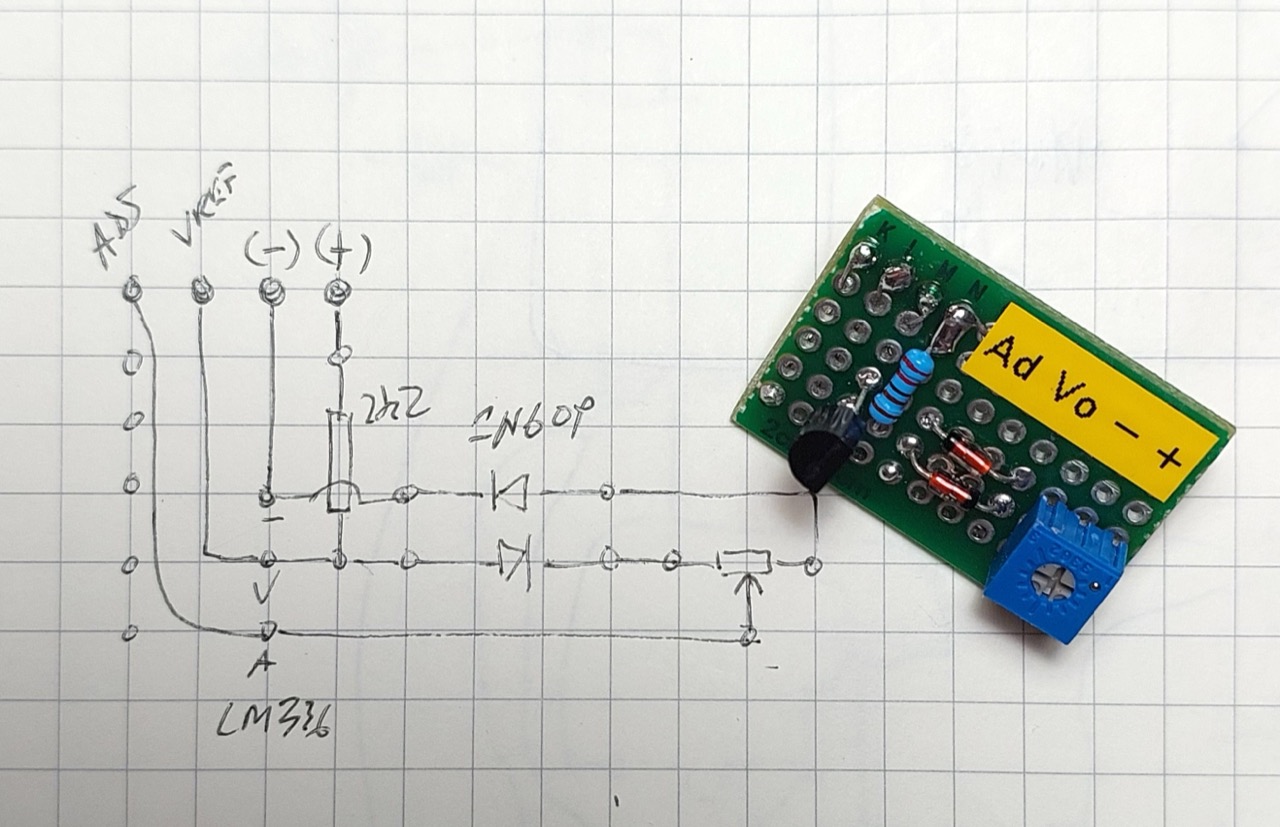 ADJ
VREF
(-) (+)
2k2
1N60P
-
V
A
LM336
K L M N
Ad Vo - +